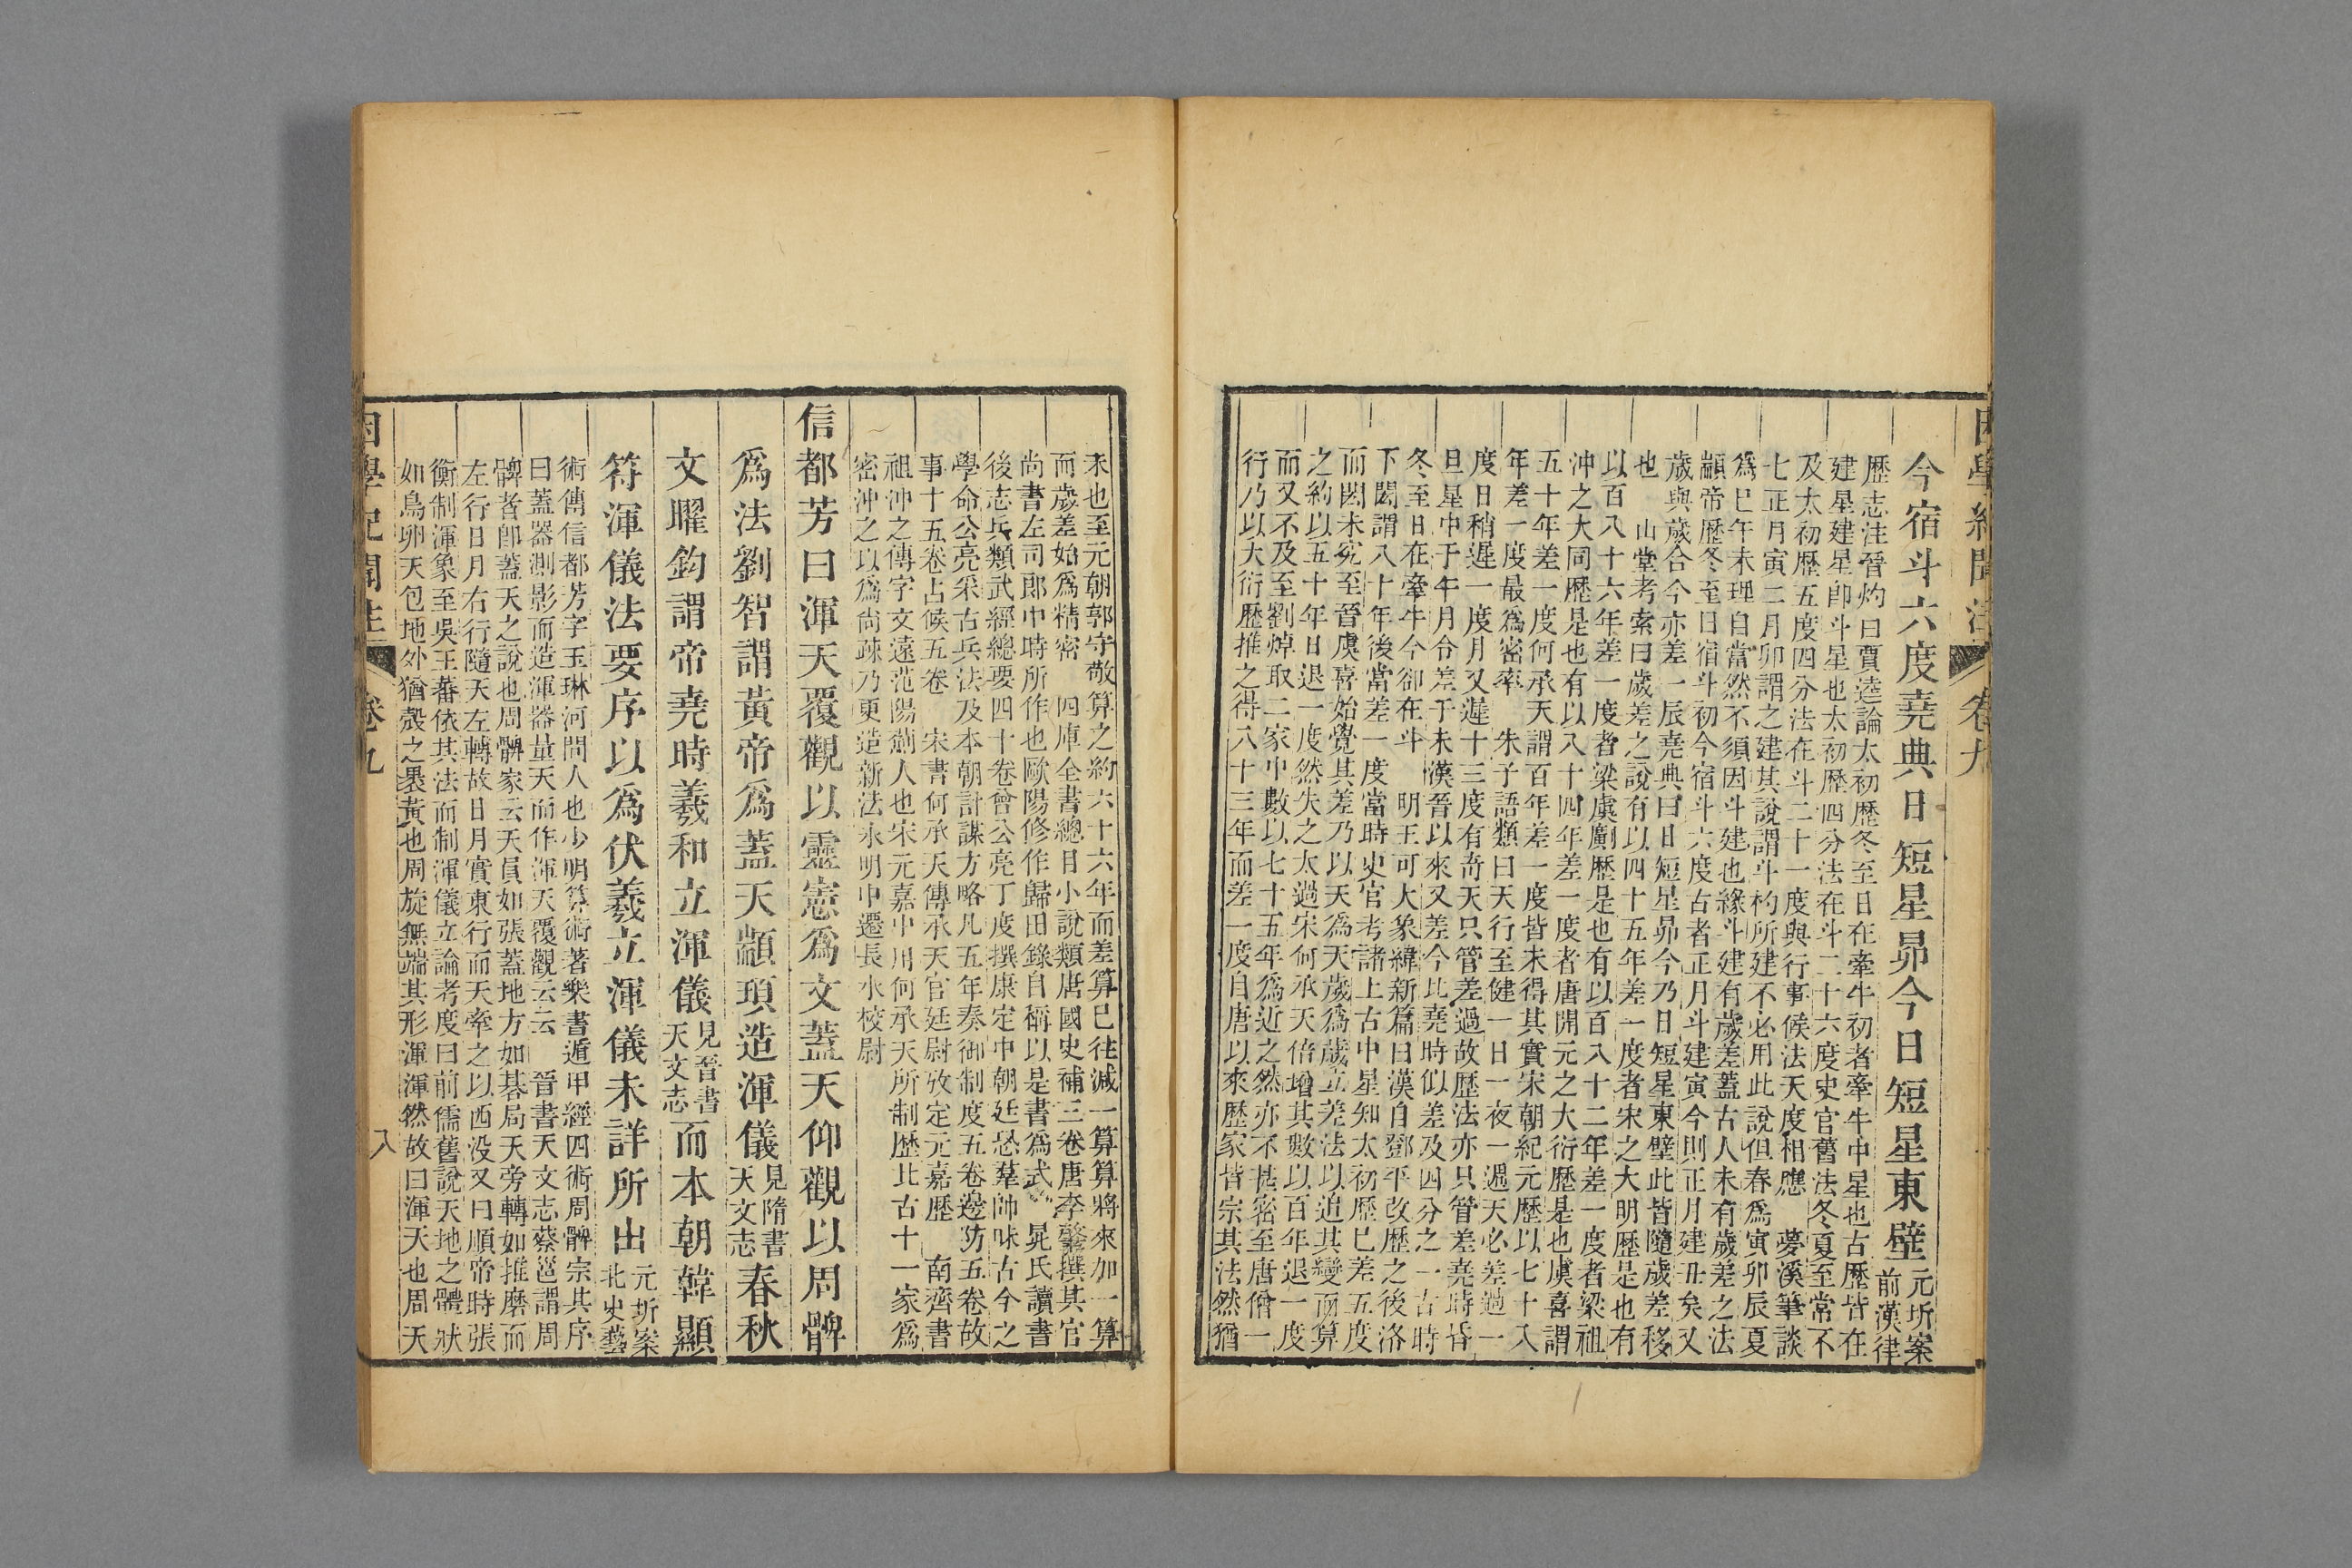 困學紀聞注 卷九
今宿斗六度堯典日短星昴今日短星東壁元圻案前漢律
歷志注晉灼曰賈逵論太初歷冬至日在牽牛初者牽牛中星也古歷皆在
建星建星卽斗星也太初歷四分法在斗二十六度史官舊法冬夏至常不
及太初歷五度四分法在斗二十一度與行事候法天度相應 夢溪筆談
七正月寅二月卯謂之建其說謂斗杓所建不必用此說但春爲寅卯辰夏
爲巳午未理自當然不須因斗建也緣斗建有歲差蓋古人未有歲差之法
顓帝歷冬至日宿斗初今宿斗六度古者正月斗建寅今則正月建丑矣又
歲與歲合今亦差一辰堯典曰日短星昴今乃日短星東壁此皆隨歲差移
也 山堂考索曰歲差之說有以四十五年差一度者宋之大明歷是也有
以百八十六年差一度者梁虞𠠎歷是也有以百八十二年差一度者梁祖
沖之大同歷是也有以八十四年差一度者唐開元之大衍歷是也虞喜謂
五十年差一度何承天謂百年差一度皆未得其實宋朝紀元歷以七十八
年差一度最爲密率 朱子語類曰天行至健一日一夜一週天必差過一
度日稍遲一度月又遲十三度有奇天只管差過故歷法亦只管差堯時昏
旦星中于午月令差于未漢晉以來又差今比堯時似差及四分之一古時
冬至日在牽牛今卻在斗 明王可大象緯新篇曰漢自鄧平改歷之後洛
下閎謂八十年後當差一度當時史官考諸上古中星知太初歷已差五度
而閎未究至晉虞喜始覺其差乃以天爲天歲爲歲立差法以追其變而算
之約以五十年日退一度然失之太過宋何承天倍增其數以百年退一度
而又不及至劉焯取二家中數以七十五年爲近之然亦不甚密至唐僧一
行乃以大衍歷推之得八十三年而差一度自唐以來歷家皆宗其法然猶
未也至元朝郭守敬算之約六十六年而差算已往減一算算將來加一算
而歲差始爲精密 四庫全書總目小說類唐國史補三卷唐李肇撰其官
尚書左司郎中時所作也歐陽修作歸田錄自稱以是書爲式 晁氏讀書
後志兵類武經總要四十卷曾公亮丁度撰康定中朝廷恐羣帥昧古今之
學命公亮采古兵法及本朝計謀方略凡五年奏御制度五卷邊防五卷故
事十五卷占候五卷 宋書何承天傳承天官廷尉攷定元嘉歷 南齊書
祖沖之傳字文遠范陽薊人也宋元嘉中用何承天所制歷比古十一家爲
密沖之以爲尙疎乃更造新法永明中遷長水校尉
信都芳曰渾天覆觀以靈憲爲文蓋天仰觀以周髀
爲法劉智謂黃帝爲蓋天顓頊造渾儀見隋書天文志春秋
文曜鈎謂帝堯時羲和立渾儀見晉書天文志而本朝韓顯
符渾儀法要序以爲伏羲立渾儀未詳所出元圻案北史藝
術傳信都芳字玉琳河間人也少明算術著樂書遁甲經四術周髀宗其序
曰蓋器測影而造渾器量天而作渾天覆觀云云 晉書天文志蔡邕謂周
髀者卽蓋天之說也周髀家云天員如張蓋地方如棊局天旁轉如推磨而
左行日月右行隨天左轉故日月實東行而天牽之以西沒又曰順帝時張
衡制渾象至吳王蕃依其法而制渾儀立論考度曰前儒舊說天地之體狀
如鳥卵天包地外猶殼之裹黃也周旋無端其形渾渾然故曰渾天也周天
困學紀聞注 卷九 八